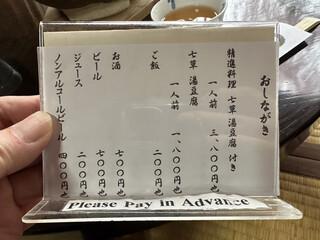 おしながき
精進料理 七草湯豆腐 付き
一人前 三、八〇〇円也
七草湯豆腐
一人前 一、八〇〇円也
ご飯 二〇〇円也
お酒 七〇〇円也
ビール 七〇〇円也
ジュース 二〇〇円也
ノンアルコールビール 四〇〇円也
Please Pay in Advance